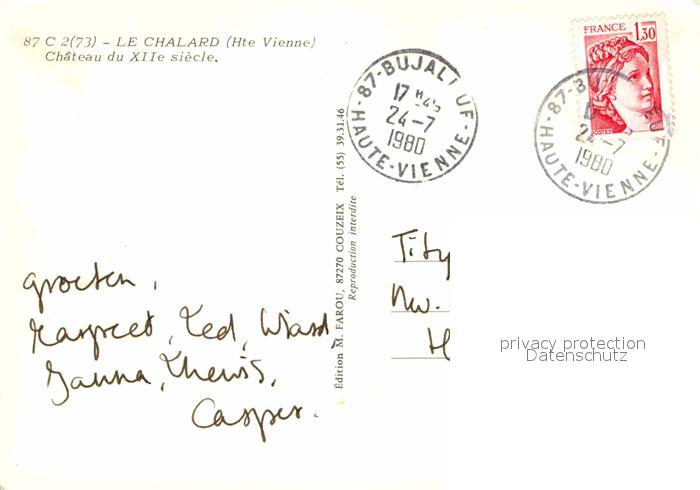 87 C 2(73) – LE CHALARD (Hte Vienne)
Château du XIIe siècle.
FRANCE
1,30
POSTES
87-BUJALEUF
17 H45
24-7
1980
HAUTE-VIENNE
87-BU
24-7
1980
HAUTE-VIENNE
Édition M. FAROU, 87270 COUZEIX Tél. (55) 39.31.46
Reproduction interdite
groeten,
Ted,
Janna,
Casper.
Nw.
H
privacy protection
Datenschutz